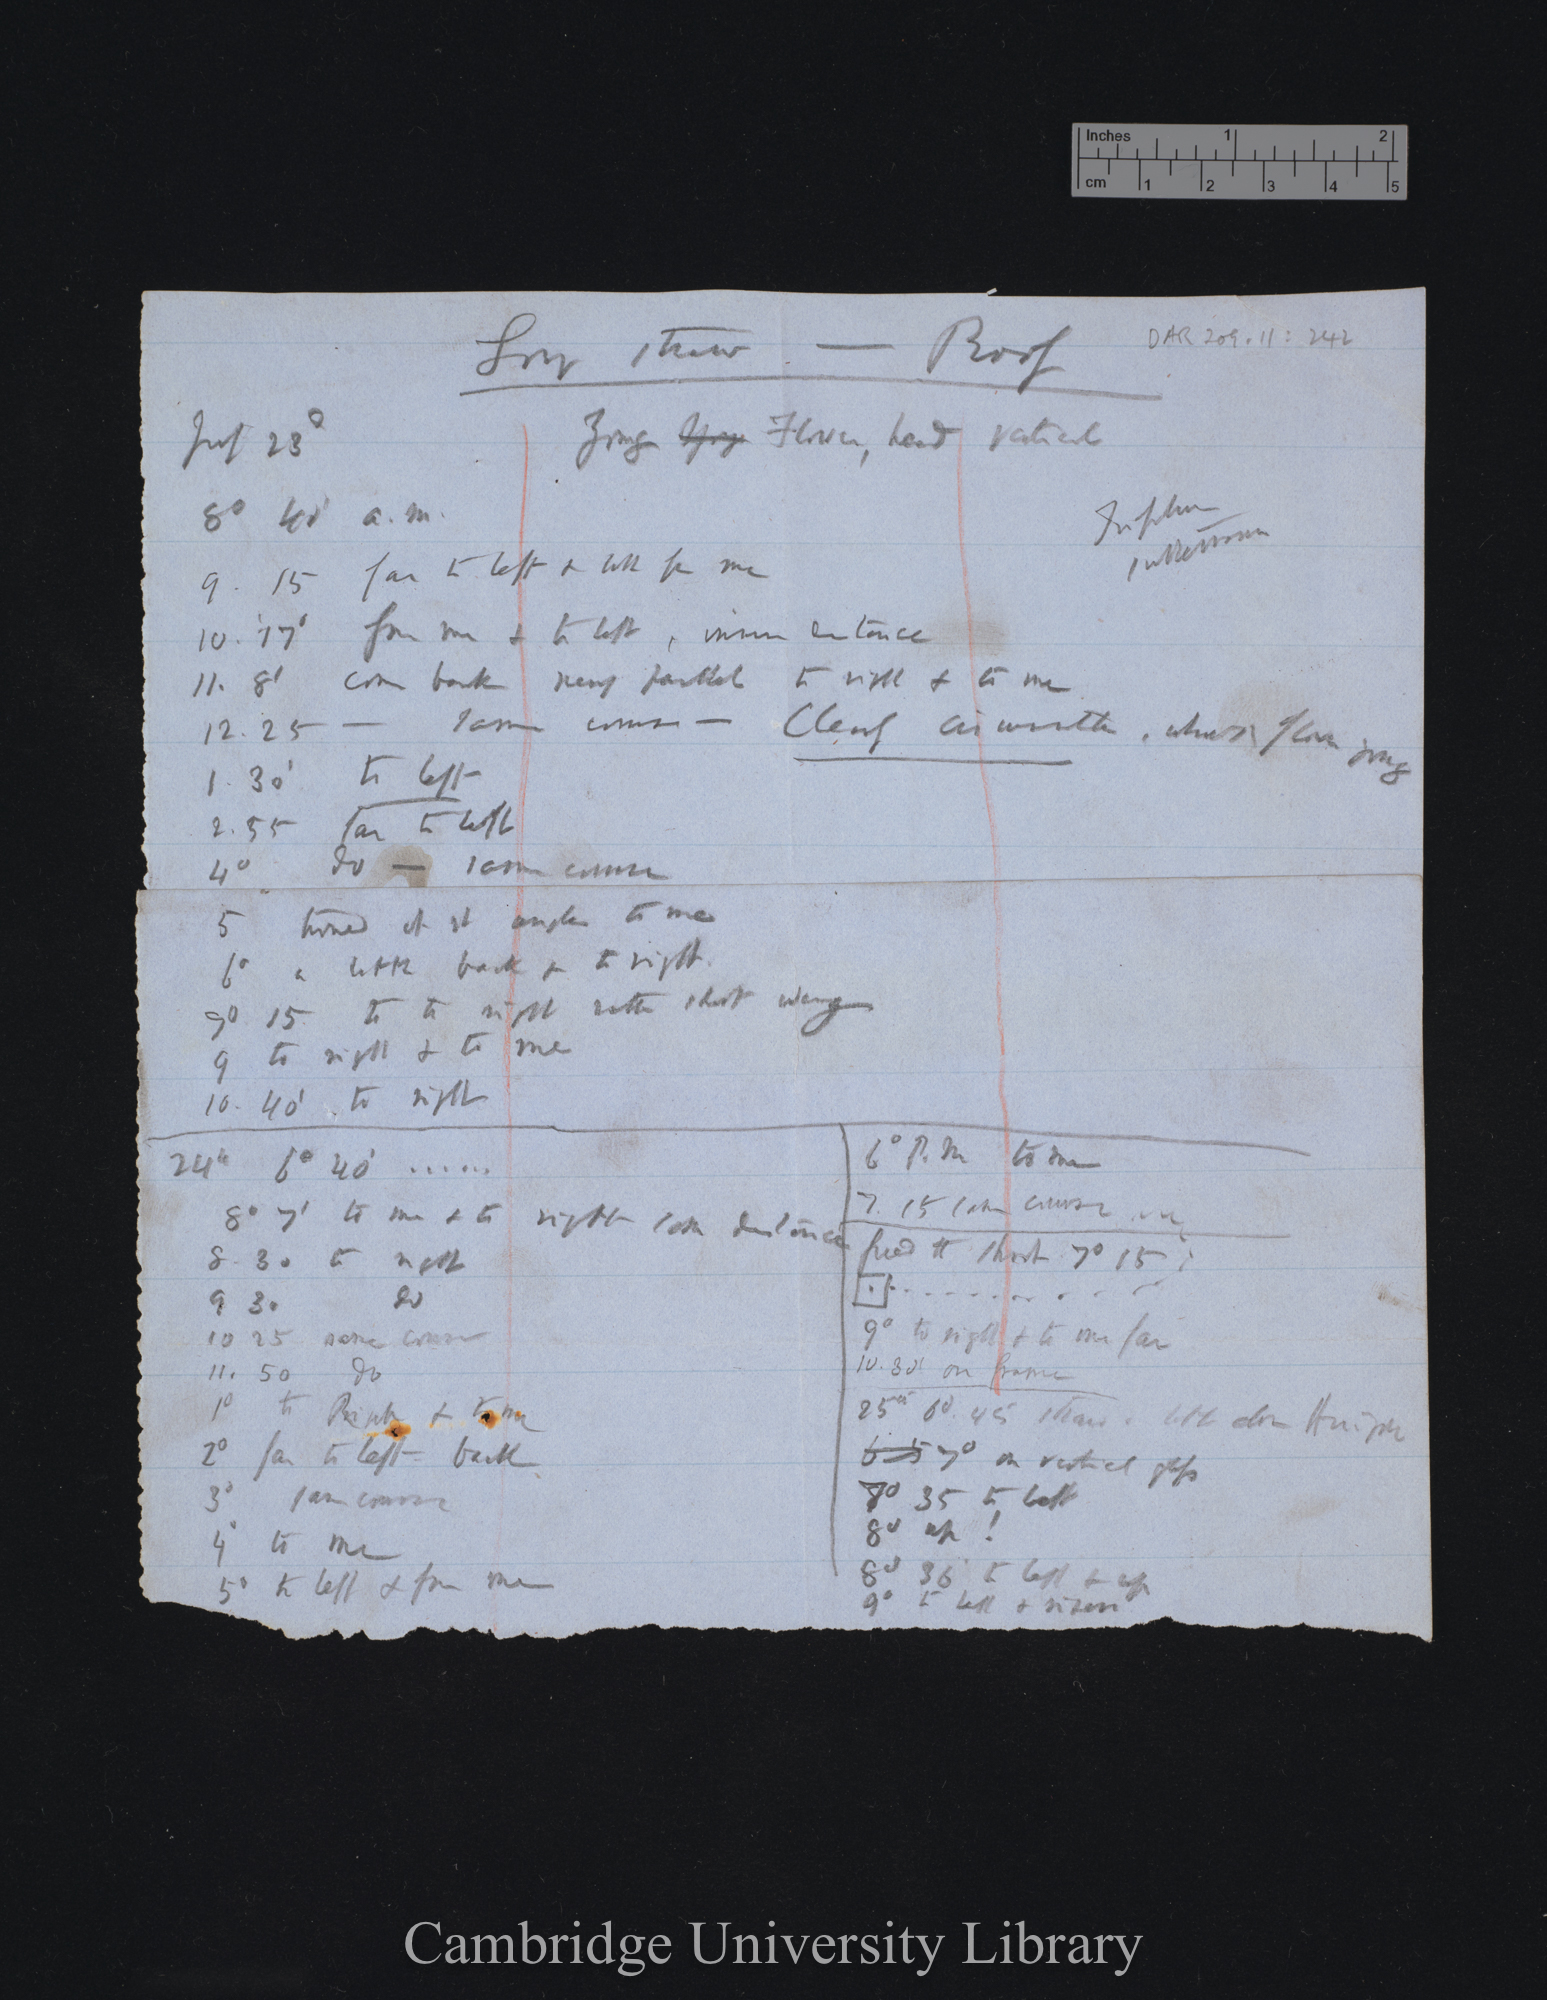 Inches 1 2
cm 1 2 3 4 5
DAR 209.11: 242
Long straw — Roof
July 23°
Young Flower, head vertical
8° 40' a.m.
Trifolium
subterraneum
9. 15 far to left & little from me
10. 17' from me & to left, distance
11. 8' come back nearly parallel to right & to me
12. 25 — same course — Clearly circumnutates, whilst flower young
1. 30' to left
2. 55 far to left
4° do — same course
5 turned at rt angles to me
6° a little back & to right.
7° 15 to to right rather short way
9 to right & to me
10. 40' to right
24th 6° 40' ......
8° 7' to me & to right same distance
8. 30 to right
9 30 do
10 25 same course
11. 50 do
1° to Right & to me
2° far to left back
3° same course
4° to me
5° to left & from me
6° P.M to me
7. 15 same course
short 7° 15
9° to right & to me far
10. 30' on frame
25th 6°. 45 straw little down
7° on vertical glass
7° 35 to left
8° up!
8° 36 to left & up
9° to left &
Cambridge University Library